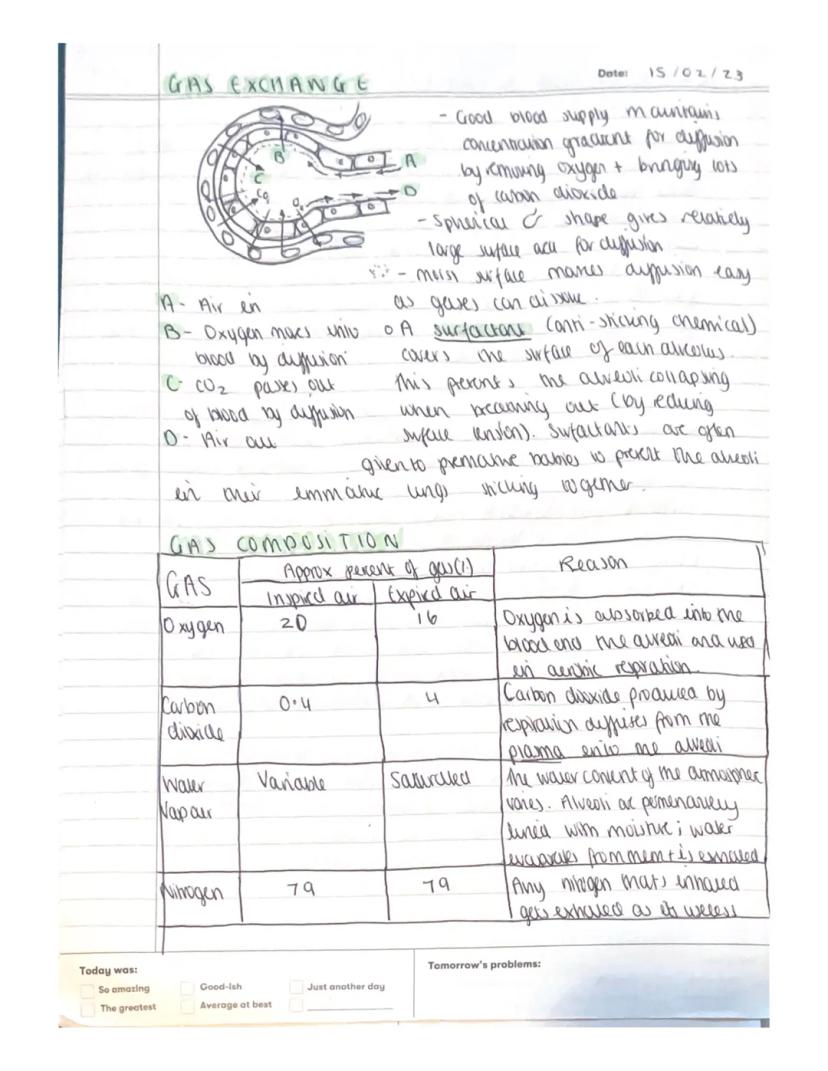 Date: 15/02/23
GAS EXCHANGE
- Good blood supply maintains
concentration gradient for diffusion
by removing oxygen + bringing lots
of carbon dioxide
- Spherical shape gives relatively
large surface area for diffusion
- moist surface makes diffusion easy
as gases can dissolve.
A
B
C
D
A- Air in
B- Oxygen moves into
blood by diffusion
C- CO2 passes out
of blood by diffusion
D- Air out
A surfactant (anti-sticking chemical)
covers the surface of each alveolus.
This prevents the alveoli collapsing
when breathing out (by reducing
surface tension). Surfactants are often
given to premature babies to prevent the alveoli
in their immature lungs sticking together.
GAS COMPOSITION
GAS
Approx percent of gas(%)
Reason
Inspired air
Expired air
Oxygen
20
16
Oxygen is absorbed into the
blood and the alveoli and used
in aerobic respiration
Carbon
dioxide
0.4
4
Carbon dioxide produced by
respiration diffuses from the
plasma into the alveoli
Water
Vapour
Variable
Saturated
The water content of the atmosphere
varies. Alveoli are permanently
lined with moisture; water
evaporates from them + is exhaled
Nitrogen
79
79
Any nitrogen thats inhaled
gets exhaled as its useless
Today was:
So amazing
Good-ish
Just another day
The greatest
Average at best
Tomorrow's problems: